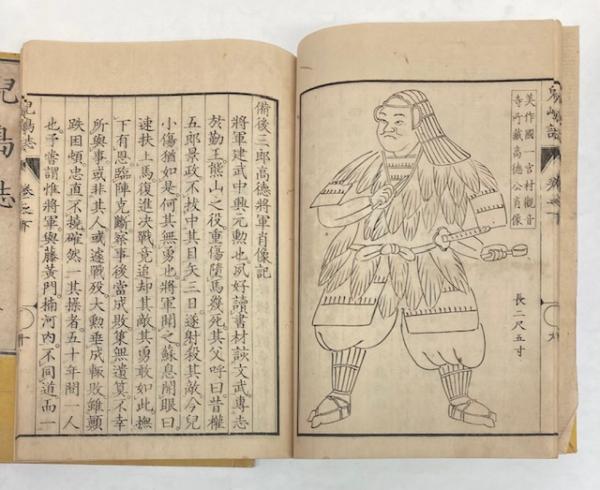 美作國一宮村觀音
寺所藏高德公肖像
長二尺五寸
九
備後三郎高德將軍肖像記
將軍建武中興元勲也夙好讀書材談文武專志
於勤王熊山之役重傷墮馬幾死其父呼曰昔權
五郎景政不拔中其目矢三日遂射殺其敵今兒
小傷猶如是何其無勇也將軍聞之蘇息開眼曰
速扶上馬復進决戰竟追却其敵其勇敢如此撫
下有恩臨陣克斷察事後當成敗策無遺算不幸
所與事或非其人或遽戰歿大勲垂成輒敗雖顛
跌困頓忠直不撓確然一其操者五十年間一人
也予嘗謂惟將軍與藤黄門楠河內不同道而一
兒島志 卷之下
十
兒島志